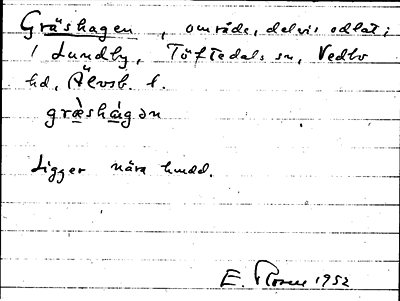 Gräshagen, område, delvis odlat;
i Lundby, Töftedals sn, Vedbo
hd, Älvsb. l.
græ̀shágən
Ligger nära huvud.
E. Rosén 1952